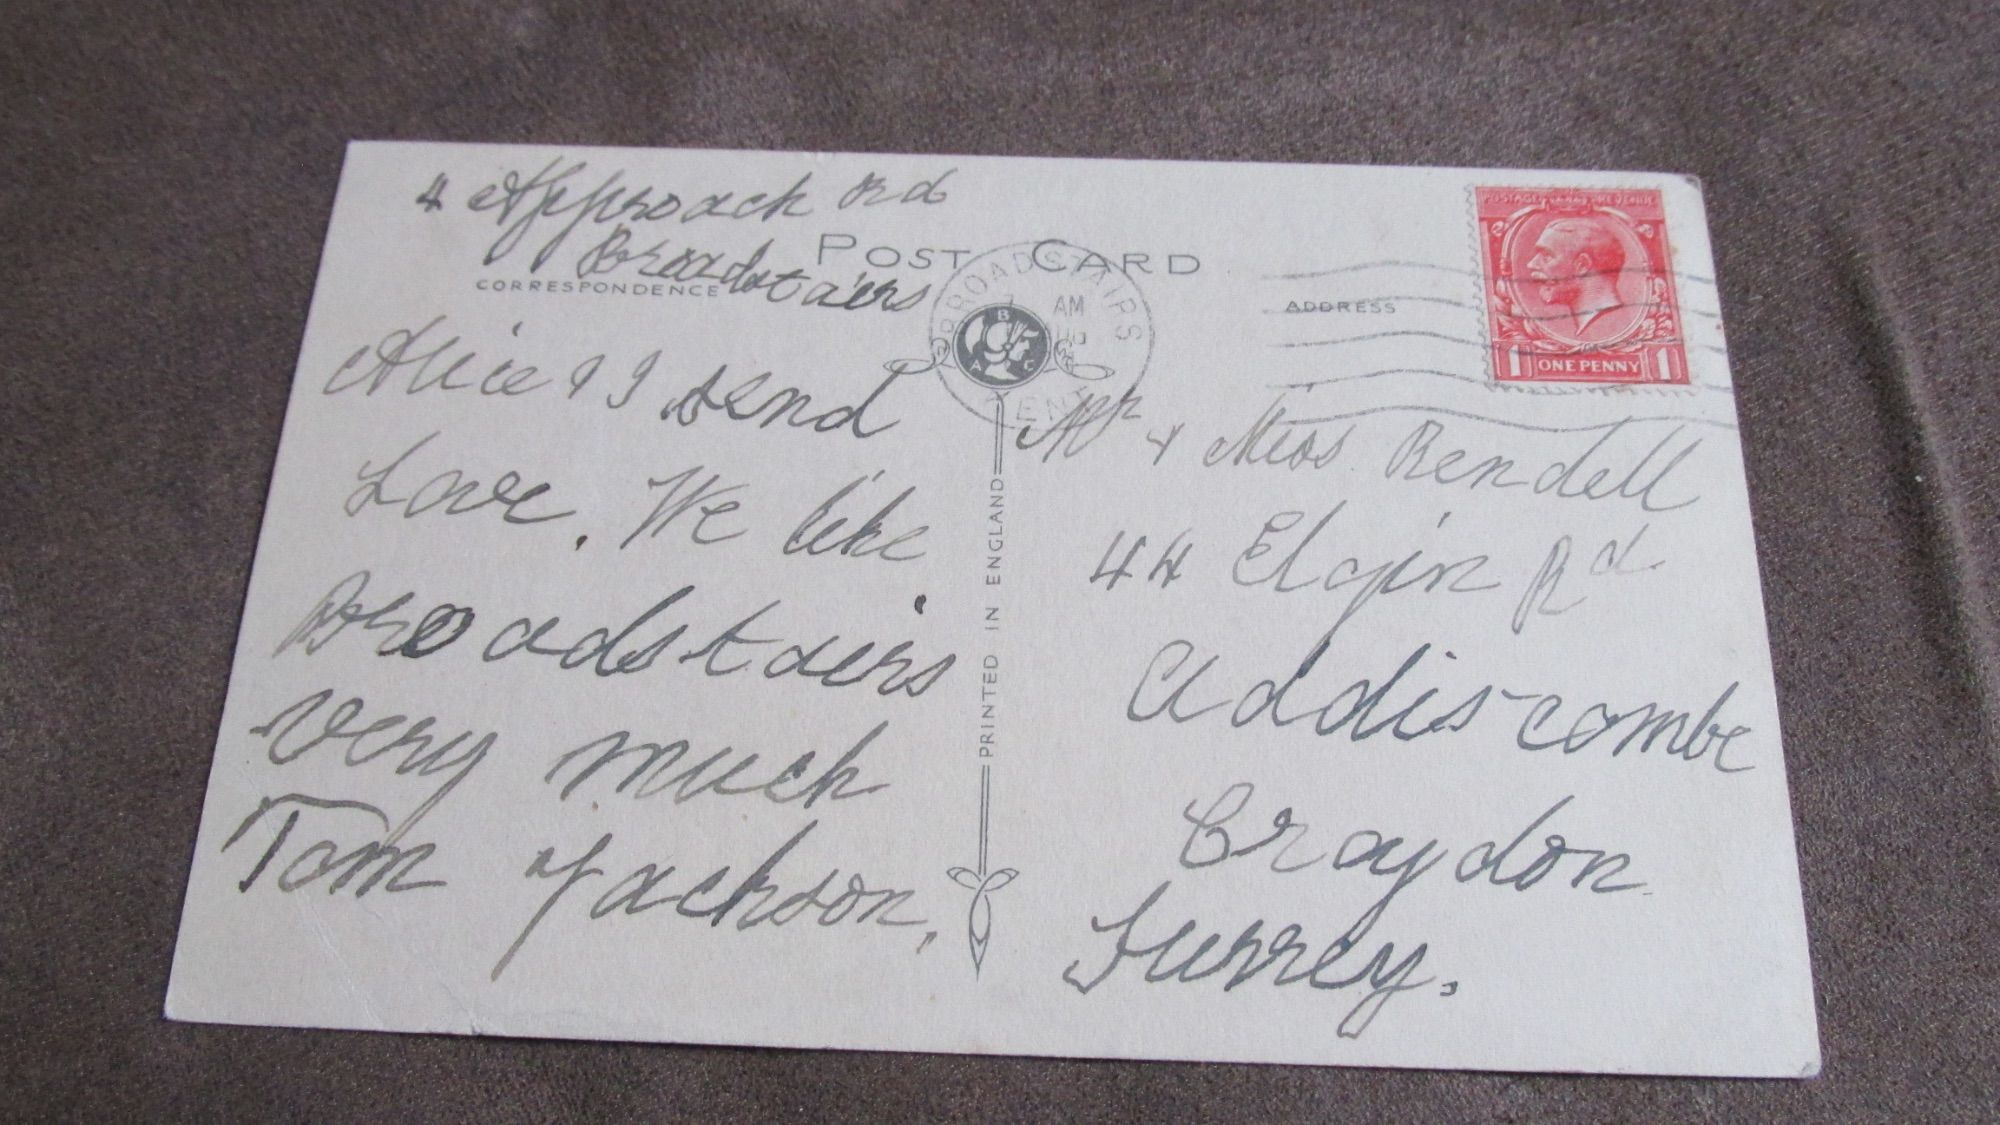 4 Approach Rd
Broadstairs
POST CARD
CORRESPONDENCE
ADDRESS
Alice & I send
Love. We like
Broadstairs
very much
Tom Jackson,
BROADSTAIRS
AM
KENT
B
A C
PRINTED IN ENGLAND
POSTAGE REVENUE
1 ONE PENNY 1
Mr & Miss Rendell
44 Elgin Rd
Addiscombe
Croydon
Surrey.